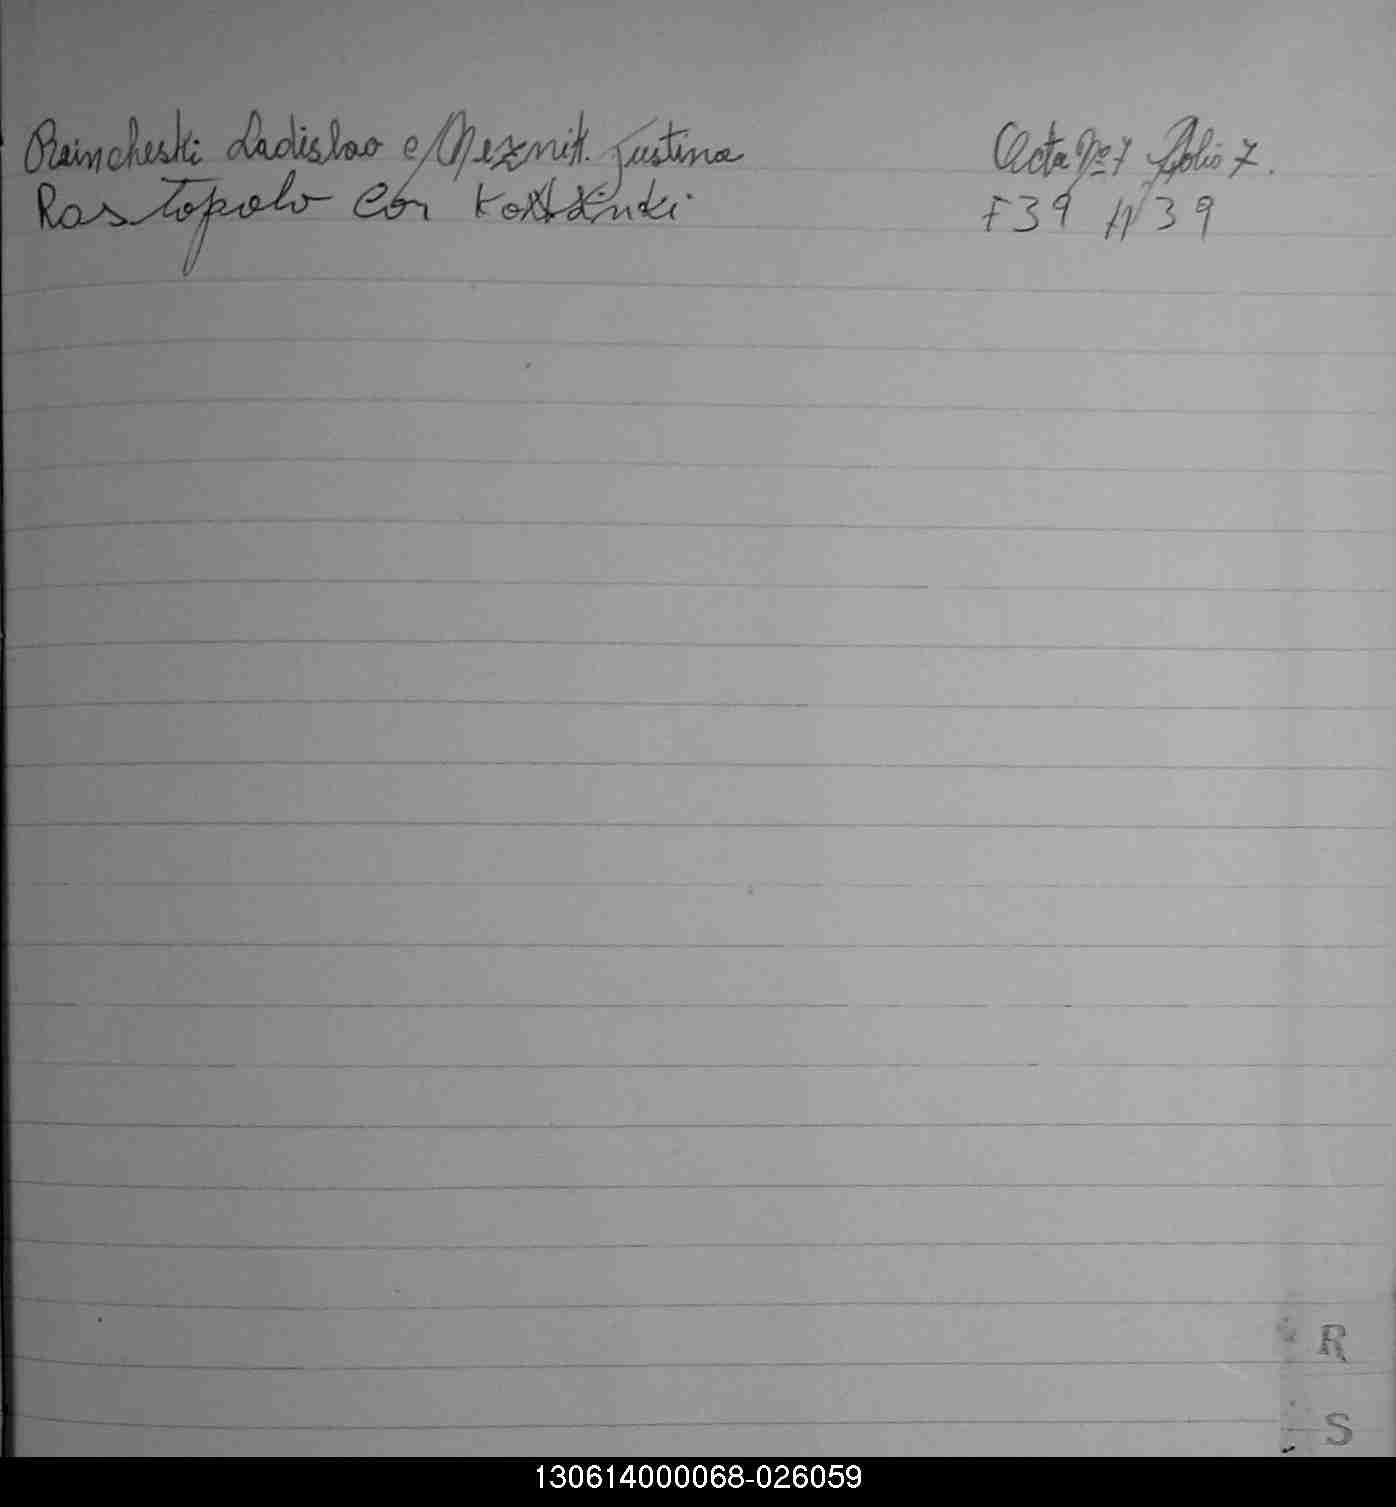 Raincheski Ladislao c/ Meznik. Justina Acta Nº 7 Folio 7.
Rastopolo con F39 N39
R
S
130614000068-026059